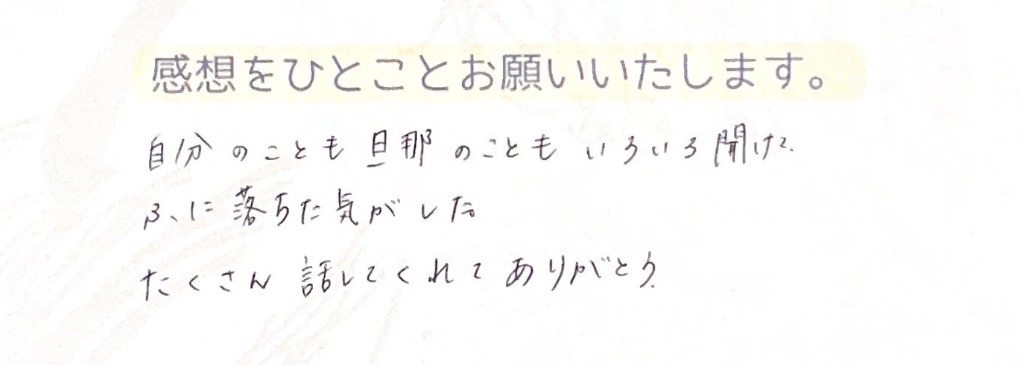 感想をひとことお願いいたします。
自分のことも旦那のこともいろいろ聞けて
ふに落ちた気がした。
たくさん話してくれてありがとう